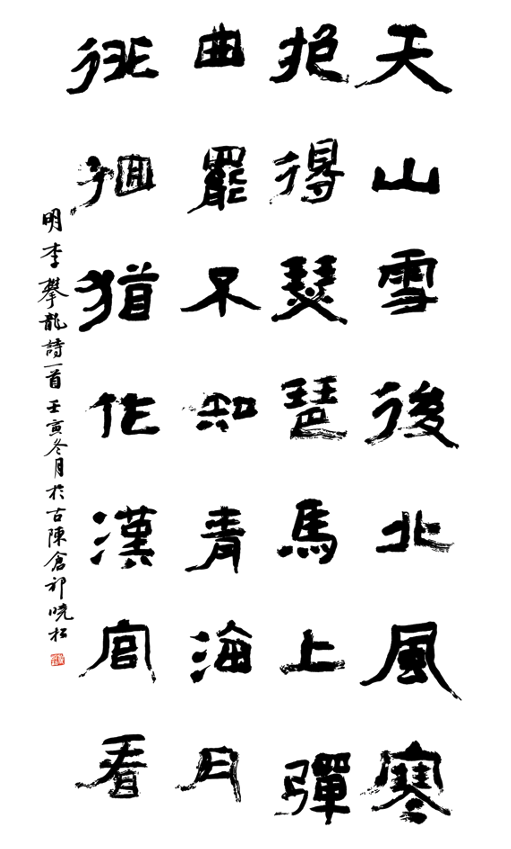 天山雪後北風寒
抱得琵琶馬上彈
曲罷不知青海月
徘徊猶作漢宮看
明李攀龍詩一首壬寅冬月於古陳倉祁曉松